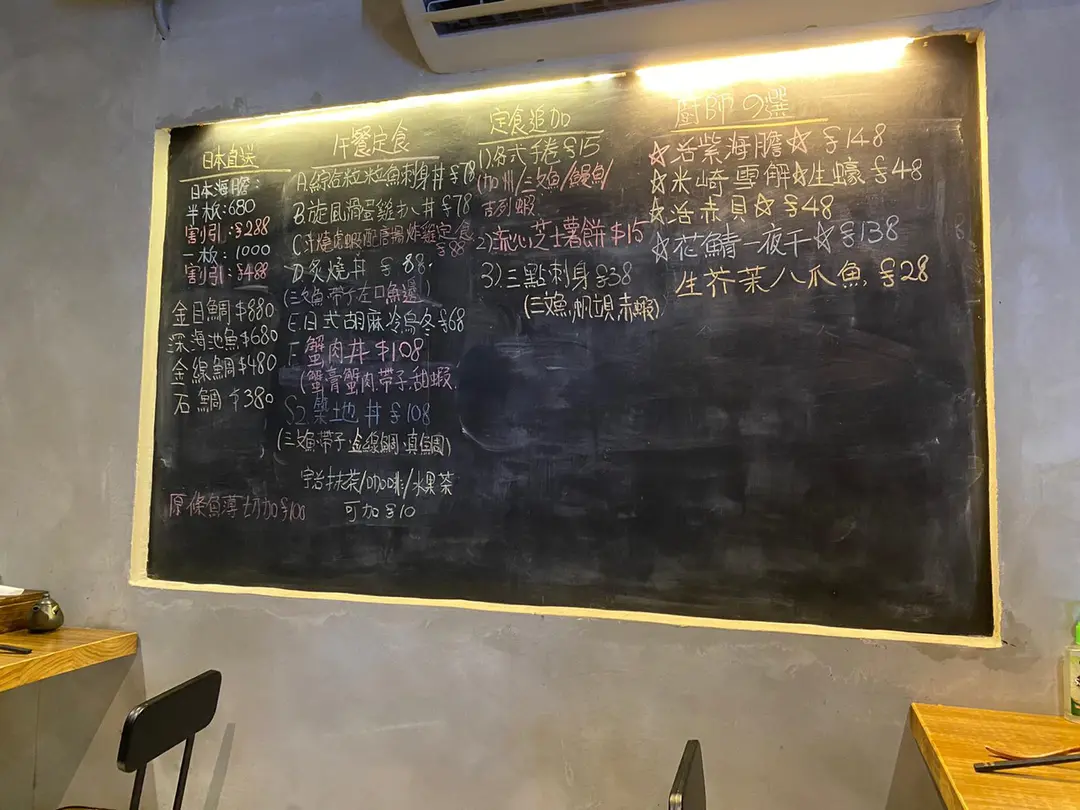 日本直送
日本海膽:
半板:680
割引:$288
一板:1000
割引:$488
金目鯛 $880
深海池魚$680
金線鯛$480
石鯛 $380
原條魚薄切加$108
午餐定食
A.綜合粒粒魚刺身丼 $78
B.旋風滑蛋雞扒丼 $78
C.汁燒虎蝦配唐揚炸雞定食
$88
D.炙燒丼 $88
(三文魚.帶子.左口魚邊)
E.日式胡麻冷烏冬$68
F.蟹肉丼 $108
(蟹膏蟹肉.帶子.甜蝦
S2.築地丼 $108
(三文魚.帶子.金線鯛.真鯛)
宇治抹茶/咖啡/水果茶
可加$10
定食追加
1)各式手卷$15
(加州/三文魚/鰻魚/
吉列蝦
2)流心芝士薯餅$15
3).三點刺身$38
(三文魚,帆立貝,赤蝦)
廚師の選
☆活紫海膽☆ $148
☆米崎雪解☆生蠔$48
☆活赤貝☆$48
☆花鯖一夜干☆$138
生芥茉八爪魚 $28